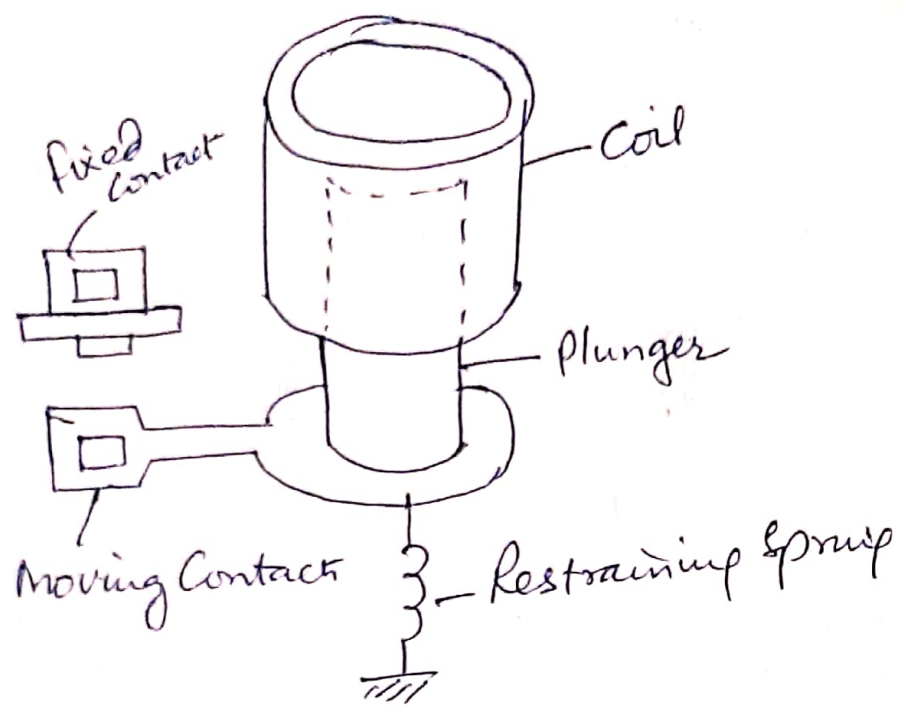 Fixed
Contact
Coil
Plunger
Moving Contact
Restraining Spring